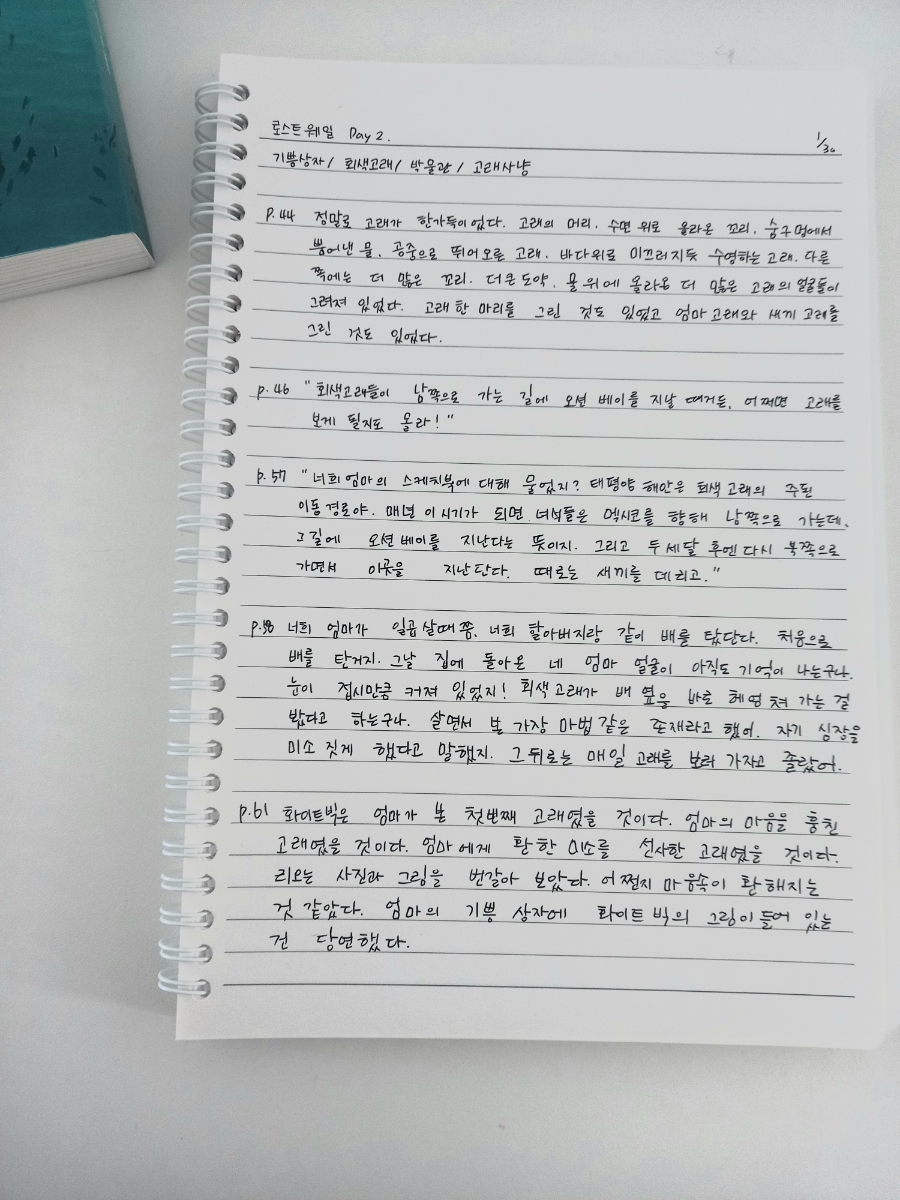 로스트 웨일 Day 2.
1/30
기쁨상자 / 회색고래 / 박물관 / 고래사냥
P.44 정말로 고래가 한가득이었다. 고래의 머리. 수면 위로 올라온 꼬리. 숨구멍에서
뿜어낸 물. 공중으로 뛰어오른 고래. 바다위로 미끄러지듯 수영하는 고래. 다른
쪽에는 더 많은 꼬리. 더큰 도약. 물 위에 올라온 더 많은 고래의 얼굴들이
그려져 있었다. 고래 한 마리를 그린 것도 있었고 엄마 고래와 새끼 고래를
그린 것도 있었다.
p.46 "회색고래들이 남쪽으로 가는 길에 오션 베이를 지날 때거든. 어쩌면 고래를
보게 될지도 몰라!"
p.57 "너희 엄마의 스케치북에 대해 물었지? 태평양 해안은 회색 고래의 주된
이동 경로야. 매년 이 시기가 되면 녀석들은 멕시코를 향해 남쪽으로 가는데.
그길에 오션베이를 지난다는 뜻이지. 그리고 두세달 후엔 다시 북쪽으로
가면서 이곳을 지난단다. 때로는 새끼를 데리고."
p.58 너희 엄마가 일곱살때쯤. 너희 할아버지랑 같이 배를 탔단다. 처음으로
배를 탄거지. 그날 집에 돌아온 네 엄마 얼굴이 아직도 기억이 나는구나.
눈이 접시만큼 커져 있었지! 회색고래가 배 옆을 바로 헤엄쳐 가는 걸
봤다고 하는구나. 살면서 본 가장 마법같은 존재라고 했어. 자기 심장을
미소 짓게 했다고 말했지. 그 뒤로는 매일 고래를 보러 가자고 졸랐어.
p.61 화이트빅은 엄마가 본 첫번째 고래였을 것이다. 엄마의 마음을 훔친
고래였을 것이다. 엄마에게 환한 미소를 선사한 고래였을 것이다.
리오는 사진과 그림을 번갈아 보았다. 어쩐지 마음속이 환해지는
것 같았다. 엄마의 기쁨 상자에 화이트빅의 그림이 들어 있는
건 당연했다.